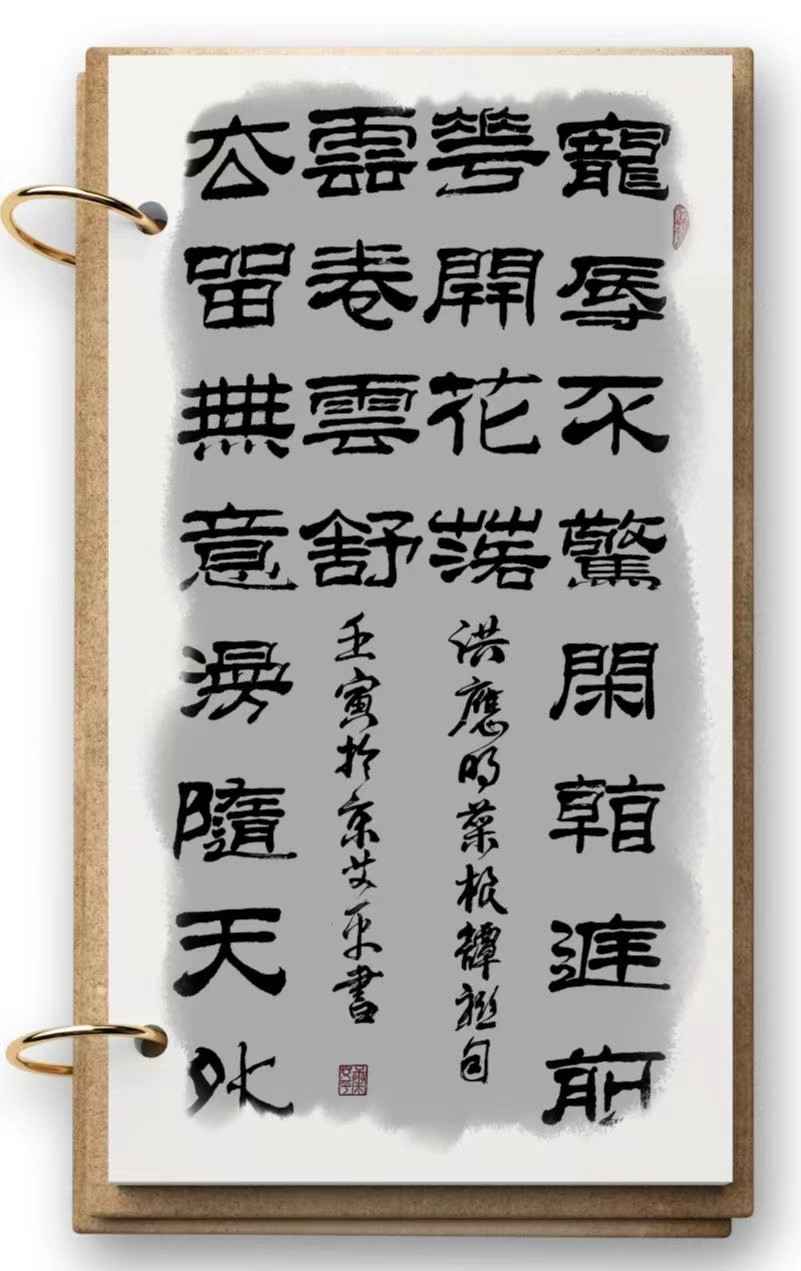 寵辱不驚閑看庭前
華開花落
洪應明菜根譚聯句
雲卷雲舒
壬寅於京艾平書
去留無意漫隨天外